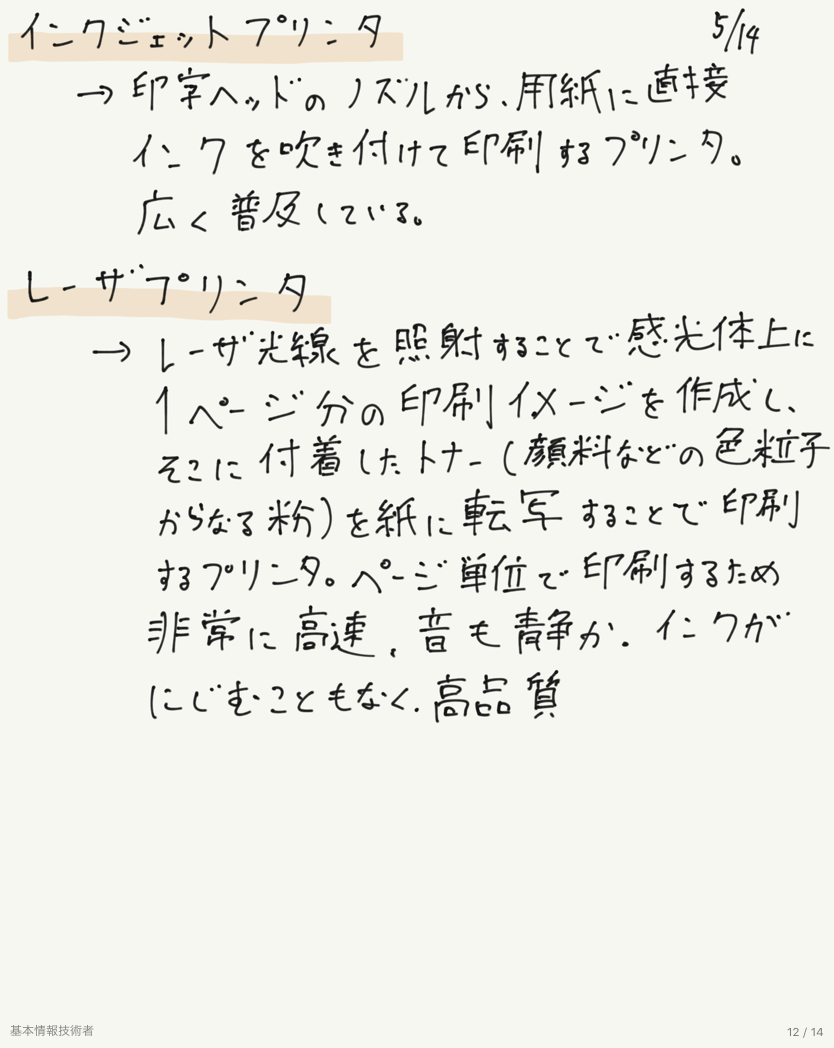 インクジェットプリンタ
5/14
→ 印字ヘッドのノズルから、用紙に直接
インクを吹き付けて印刷するプリンタ。
広く普及している。
レーザプリンタ
→ レーザ光線を照射することで感光体上に
1ページ分の印刷イメージを作成し、
そこに付着したトナー(顔料などの色粒子
からなる粉)を紙に転写することで印刷
するプリンタ。ページ単位で印刷するため
非常に高速、音も静か。インクが
にじむこともなく、高品質
基本情報技術者
12 / 14